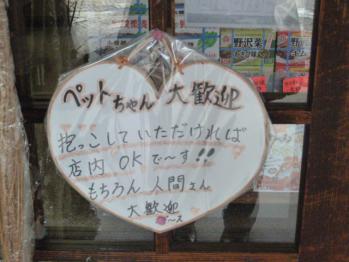 野沢菜
ペットちゃん 大歓迎
抱っこしていただければ
店内 OKで〜す!!
もちろん 人間さん
大歓迎
で〜ス